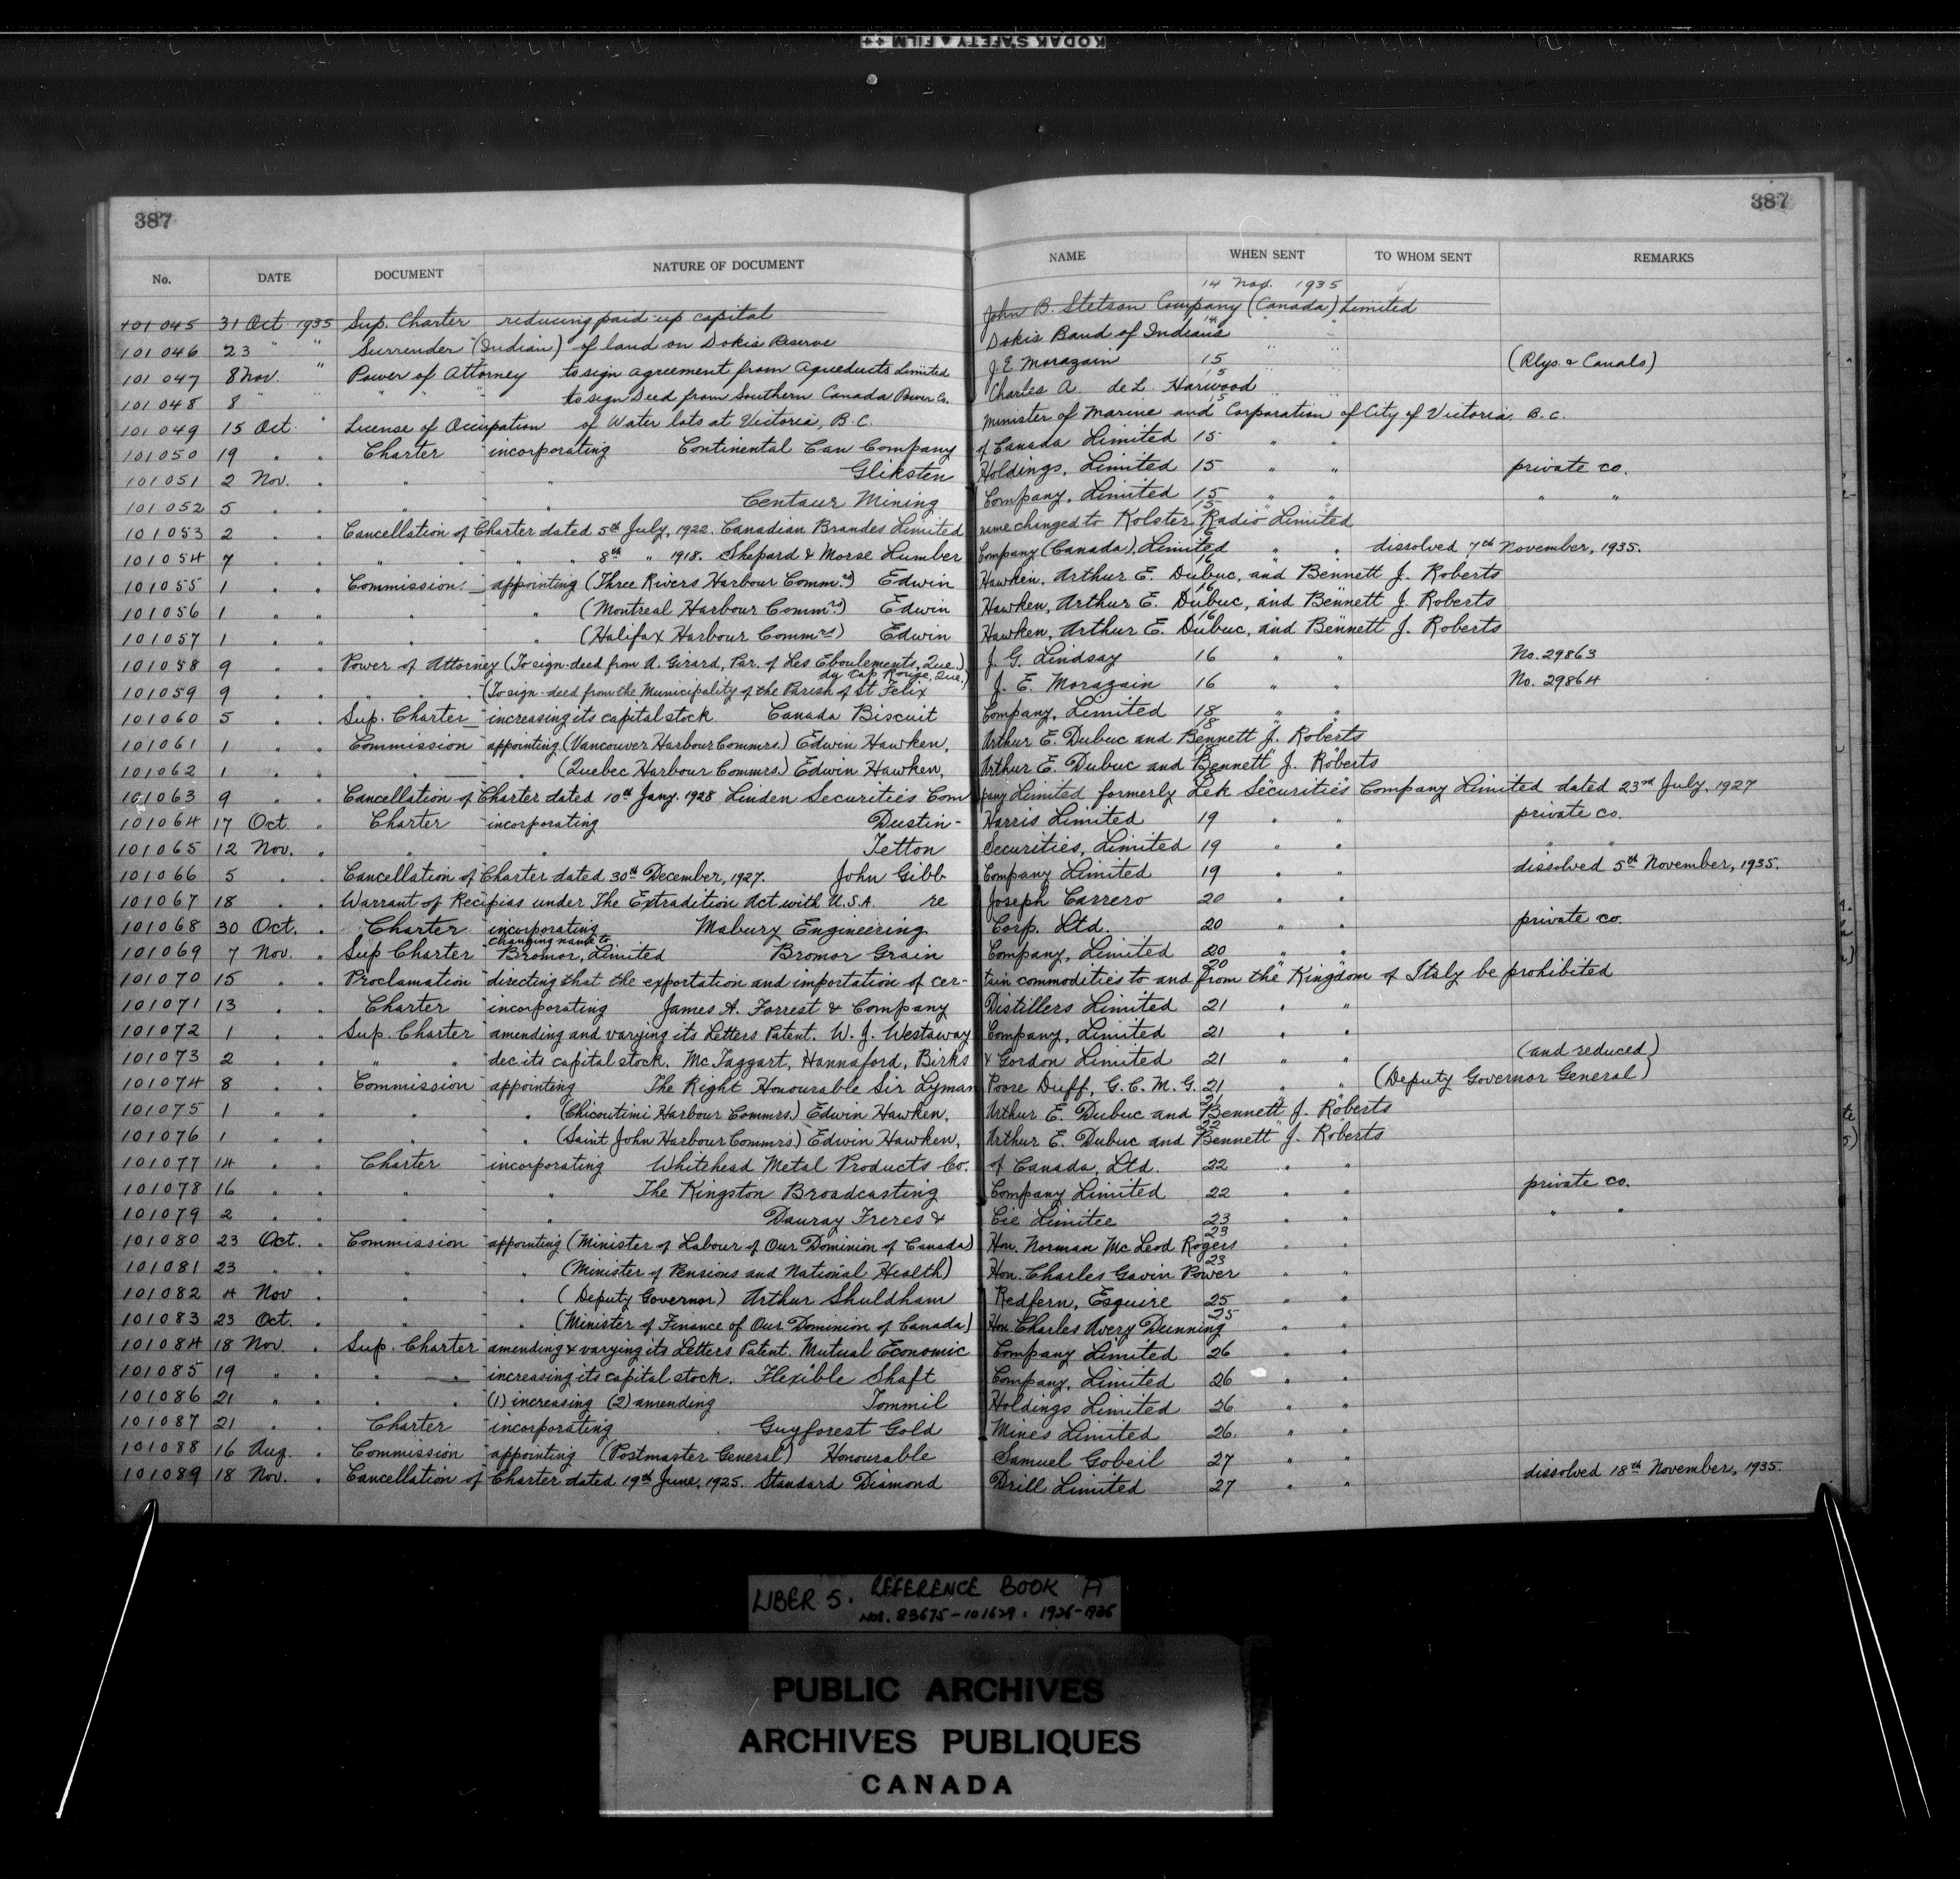 KODAK SAFETY FILM ++
387 387
No. DATE DOCUMENT NATURE OF DOCUMENT NAME WHEN SENT TO WHOM SENT REMARKS
14 Nov. 1935
101045 31 Oct 1935 Sup. Charter reducing paid-up capital John B. Stetson Company (Canada) Limited
101046 23 " " Surrender (Indian) of land on Dokis Reserve Dokis Band of Indians 14 " "
101047 8 Nov. " Power of Attorney to sign agreement from Aqueducts Limited J. E. Morazain 15 " " (Rlys. & Canals)
101048 8 " " " " " to sign Deed from Southern Canada Power Co. Charles A. de L. Harwood 15 " "
101049 15 Oct. " License of Occupation of Water lots at Victoria, B.C. Minister of Marine and Corporation of City of Victoria. B.C. 15 " "
101050 19 " " Charter incorporating Continental Can Company of Canada Limited 15 " "
101051 2 Nov. " " " Gliksten Holdings, Limited 15 " " private co.
101052 5 " " " " Centaur Mining Company, Limited 15 " " " "
101053 2 " " Cancellation of Charter dated 5th July, 1922. Canadian Brandes Limited name changed to Kolster Radio Limited 15 " "
101054 7 " " " " " 8th " 1918. Shepard & Morse Lumber Company (Canada), Limited " " dissolved 7th November, 1935.
101055 1 " " Commission appointing (Three Rivers Harbour Commrs.) Edwin Hawken, Arthur E. Dubuc, and Bennett J. Roberts 16 " "
101056 1 " " " " (Montreal Harbour Commrs.) Edwin Hawken, Arthur E. Dubuc, and Bennett J. Roberts 16 " "
101057 1 " " " " (Halifax Harbour Commrs) Edwin Hawken, Arthur E. Dubuc, and Bennett J. Roberts 16 " "
101058 9 " " Power of Attorney (To sign deed from A. Girard, Par. of Les Eboulements, Que.) J. G. Lindsay 16 " " No. 29863
du Cap Rouge, Que.)
101059 9 " " " " " (To sign deed from the Municipality of the Parish of St. Felix J. E. Morazain 16 " " No. 29864
101060 5 " " Sup. Charter increasing its capital stock. Canada Biscuit Company, Limited 18 " "
101061 1 " " Commission appointing (Vancouver Harbour Commrs.) Edwin Hawken, Arthur E. Dubuc and Bennett J. Roberts 18 " "
101062 1 " " " " (Quebec Harbour Commrs.) Edwin Hawken, Arthur E. Dubuc and Bennett J. Roberts 18 " "
101063 9 " " Cancellation of Charter dated 10th Jany. 1928 Linden Securities Company Limited formerly Lek Securities Company Limited dated 23rd July, 1927 18 " "
101064 17 Oct. " Charter incorporating Dustin-Harris Limited 19 " " private co.
101065 12 Nov. " " " Tetton Securities, Limited 19 " " " "
101066 5 " " Cancellation of Charter dated 30th December, 1927. John Gibb Company Limited 19 " " dissolved 5th November, 1935.
101067 18 " " Warrant of Recipias under The Extradition Act with U.S.A. re Joseph Carrero 20 " "
101068 30 Oct. " Charter incorporating Mabury Engineering Corp. Ltd. 20 " " private co.
changing name to
101069 7 Nov. " Sup Charter Bromor, Limited Bromor Grain Company, Limited 20 " "
101070 15 " " Proclamation directing that the exportation and importation of certain commodities to and from the Kingdom of Italy be prohibited 20 " "
101071 13 " " Charter incorporating James A. Forrest & Company Distillers Limited 21 " "
101072 1 " " Sup. Charter amending and varying its Letters Patent. W. J. Westaway Company, Limited 21 " "
101073 2 " " " " dec. its capital stock. McTaggart, Hannaford, Birks & Gordon Limited 21 " " (and reduced)
101074 8 " " Commission appointing The Right Honourable Sir Lyman Poore Duff, G.C.M.G. 21 " " (Deputy Governor General)
101075 1 " " " " (Chicoutimi Harbour Commrs.) Edwin Hawken, Arthur E. Dubuc and Bennett J. Roberts 21 " "
101076 1 " " " " (Saint John Harbour Commrs.) Edwin Hawken, Arthur E. Dubuc and Bennett J. Roberts 22 " "
101077 14 " " Charter incorporating Whitehead Metal Products Co. of Canada, Ltd. 22 " "
101078 16 " " " " The Kingston Broadcasting Company Limited 22 " " private co.
101079 2 " " " " Dauray Freres & Cie Limitee 23 " " " "
101080 23 Oct. " Commission appointing (Minister of Labour of Our Dominion of Canada) Hon. Norman McLeod Rogers 23 " "
101081 23 " " " " (Minister of Pensions and National Health) Hon. Charles Gavin Power 23 " "
101082 4 Nov " " " (Deputy Governor) Arthur Shuldham Redfern, Esquire 25 " "
101083 23 Oct. " " " (Minister of Finance of Our Dominion of Canada) Hon. Charles Avery Dunning 25 " "
101084 18 Nov. " Sup. Charter amending & varying its Letters Patent. Mutual Economic Company Limited 26 " "
101085 19 " " " " increasing its capital stock. Flexible Shaft Company, Limited 26 " "
101086 21 " " " " (1) increasing (2) amending Tommil Holdings Limited 26 " "
101087 21 " " Charter incorporating Guyforest Gold Mines Limited 26. " "
101088 16 Aug. " Commission appointing (Postmaster General) Honourable Samuel Gobeil 27 " "
101089 18 Nov. " Cancellation of Charter dated 19th June, 1925. Standard Diamond Drill Limited 27 " " dissolved 18th November, 1935.
LIBER 5. REFERENCE BOOK A
NOS. 83675-101629: 1926-1936
PUBLIC ARCHIVES
ARCHIVES PUBLIQUES
CANADA